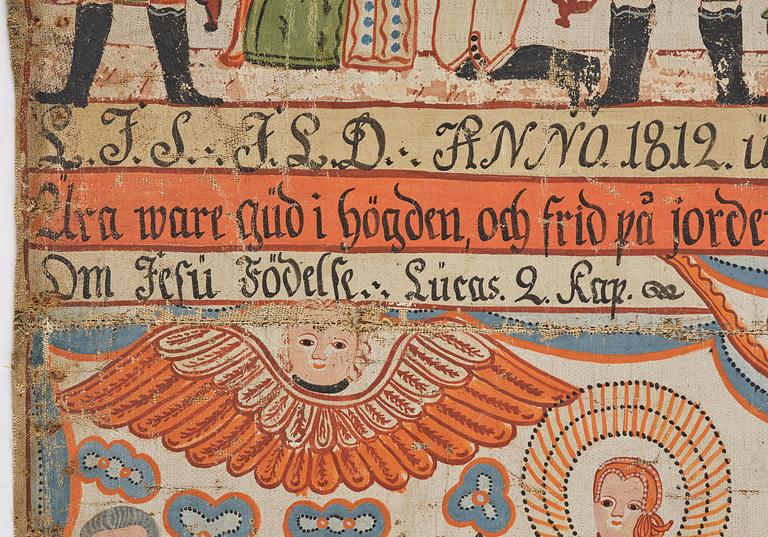 L. I. S. :. I. L. D. :. ANNO. 1812.
Ära ware güd i högden, och frid på
Om Jesü Födelse. :. Lücas. 2. Kap.